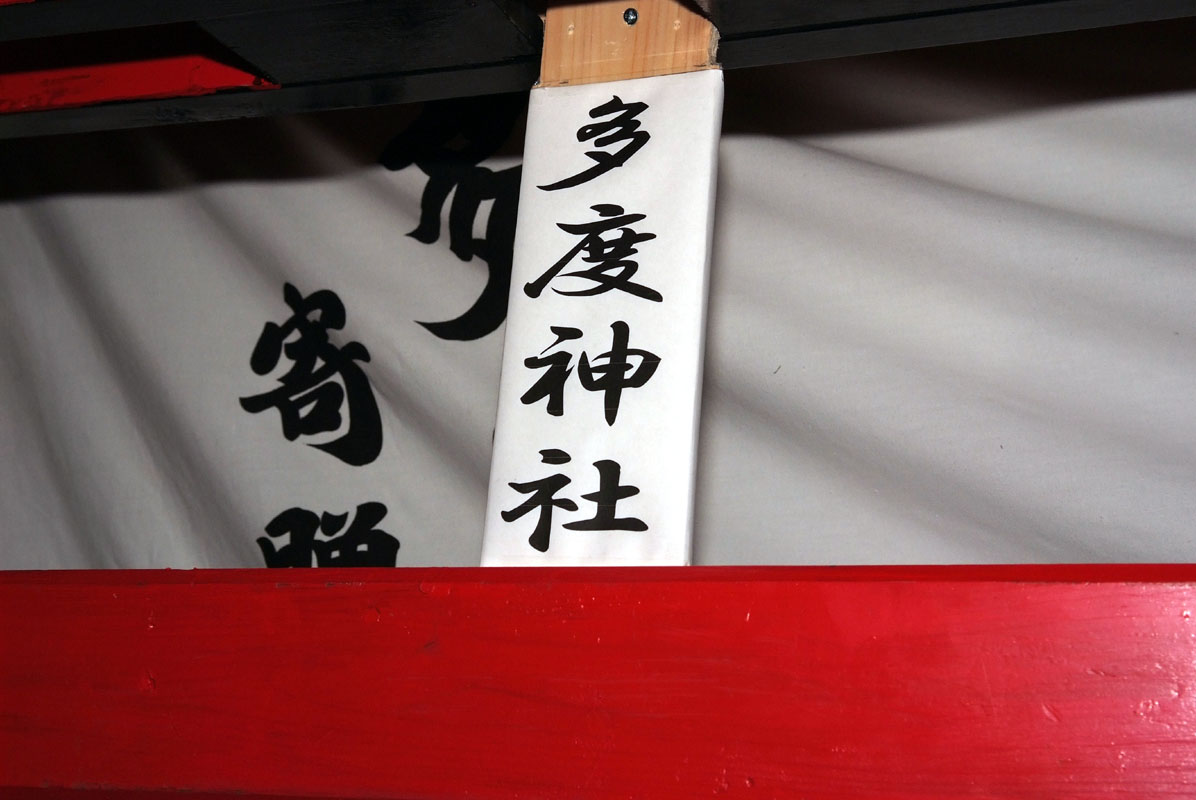 多度神社
寄贈